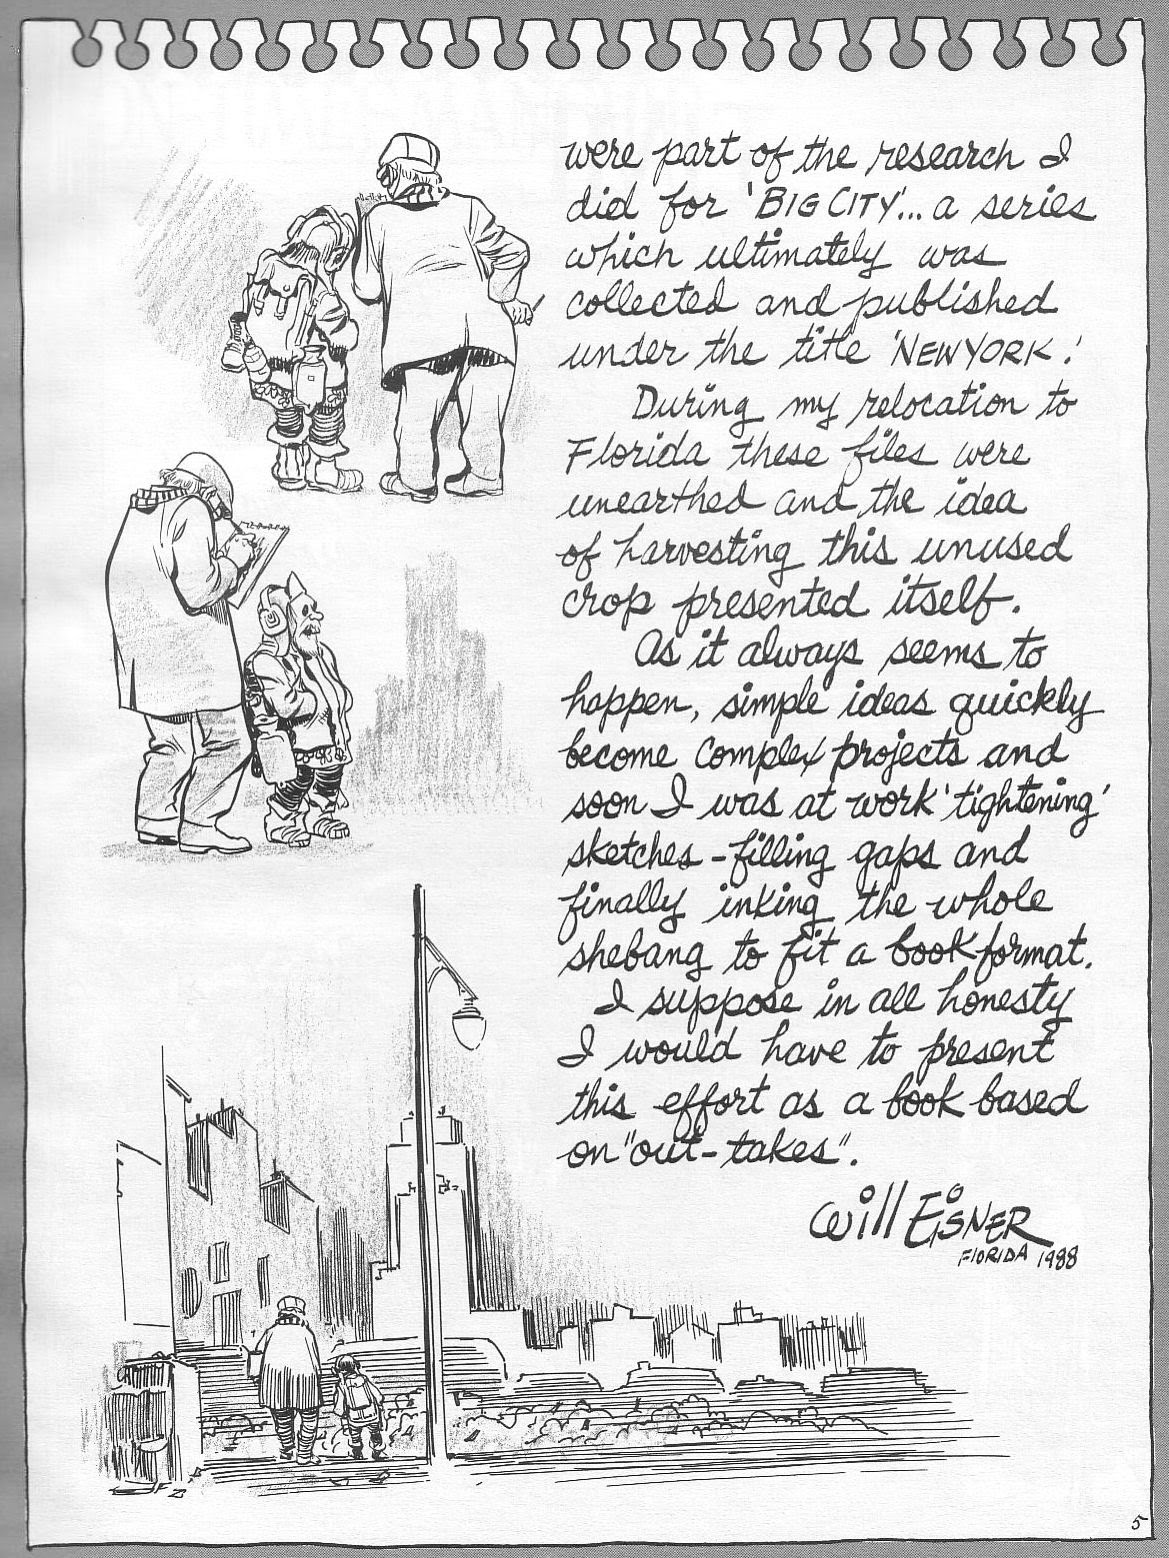 were part of the research I
did for 'BIG CITY'... a series
which ultimately was
collected and published
under the title 'NEW YORK.'
During my relocation to
Florida these files were
unearthed and the idea
of harvesting this unused
crop presented itself.
As it always seems to
happen, simple ideas quickly
become complex projects and
soon I was at work 'tightening'
sketches - filling gaps and
finally inking the whole
shebang to fit a book format.
I suppose in all honesty
I would have to present
this effort as a book based
on "out-takes".
Will EISNER
FLORIDA 1988
5